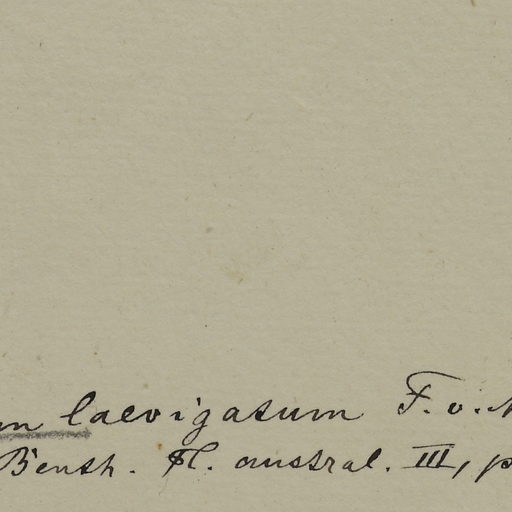 laevigatum F. v.
Benth. Fl. austral. III, p